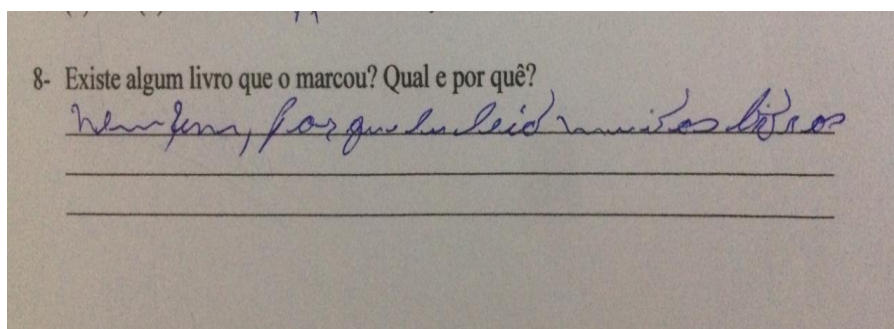 8- Existe algum livro que o marcou? Qual e por quê?
nem tem, por que eu leio muitos livros